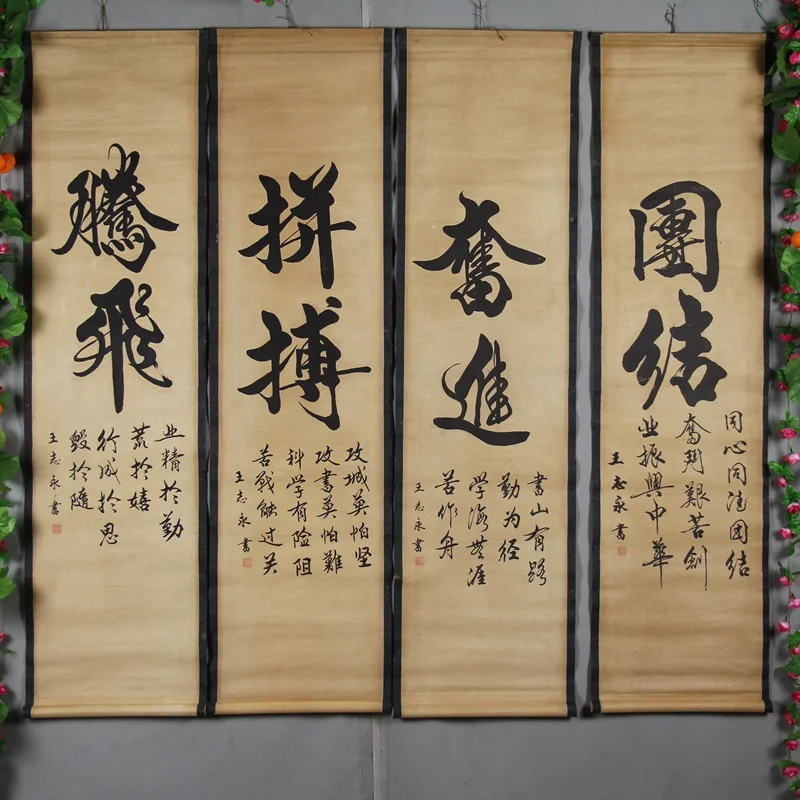 團結
同心同德團結
奮鬥艱苦創
业振興中華
王志永書
奮進
書山有路
勤为径
学海無涯
苦作舟
王志永書
拼搏
攻城莫怕坚
攻書莫怕難
科学有险阻
苦战能过关
王志永書
騰飛
业精於勤
荒於嬉
行成於思
毀於隨
王志永書